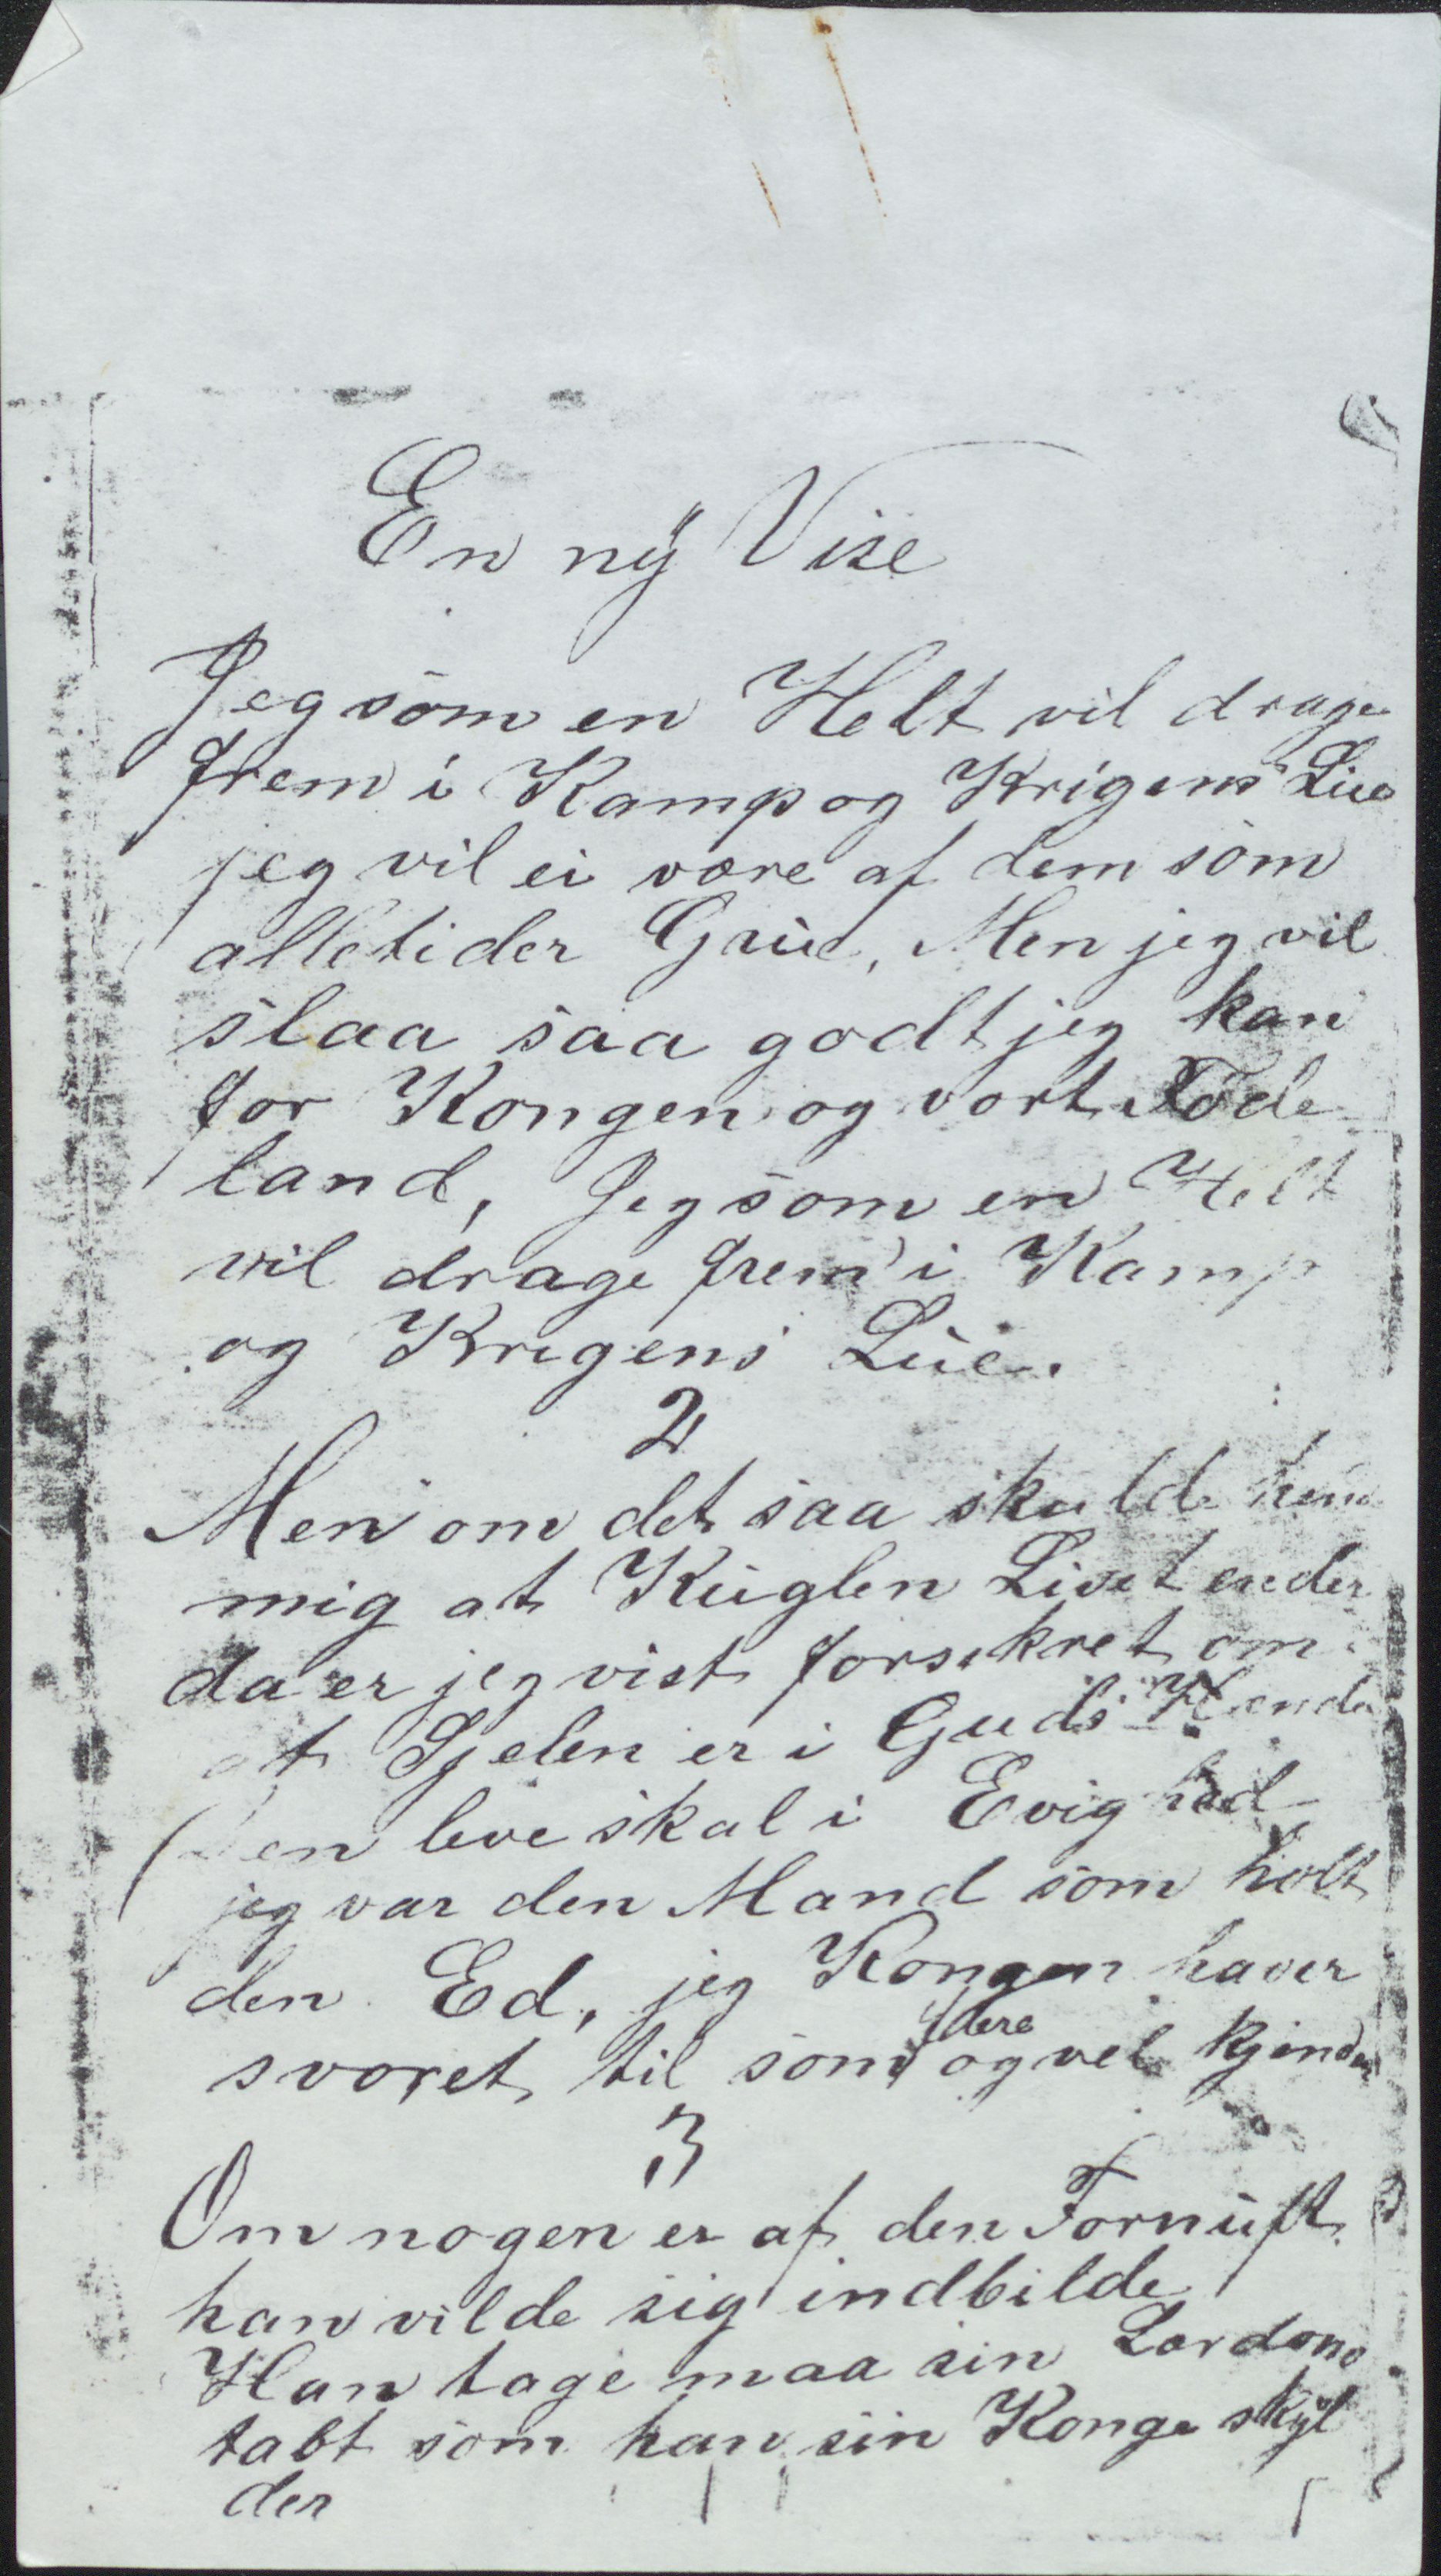 En ny Vise
Jeg som en Helt vil drage
frem i Kamp og Krigens Lue
jeg vil ei være af dem som
alletider Grue, Men jeg vil
slaa saa godt jeg kan
for Kongen og vort Føde
land, Jeg som en Helt
vil drage frem i Kamp
og Krigens Lue.
2
Men om det saa skulde
mig at Kuglen Livet ender
da er jeg vist forsikret om
at Sjelen er i Guds Hænder
Den leve skal i Evighed
jeg var den Mand som holt
den Ed, jeg Kongen haver
svoret til som dere og vel kjender
3
Om nogen er af den Fornuft
han vilde sig indbilde
Han tage maa sin Lærdom
tabt som han sin Konge skyl
der